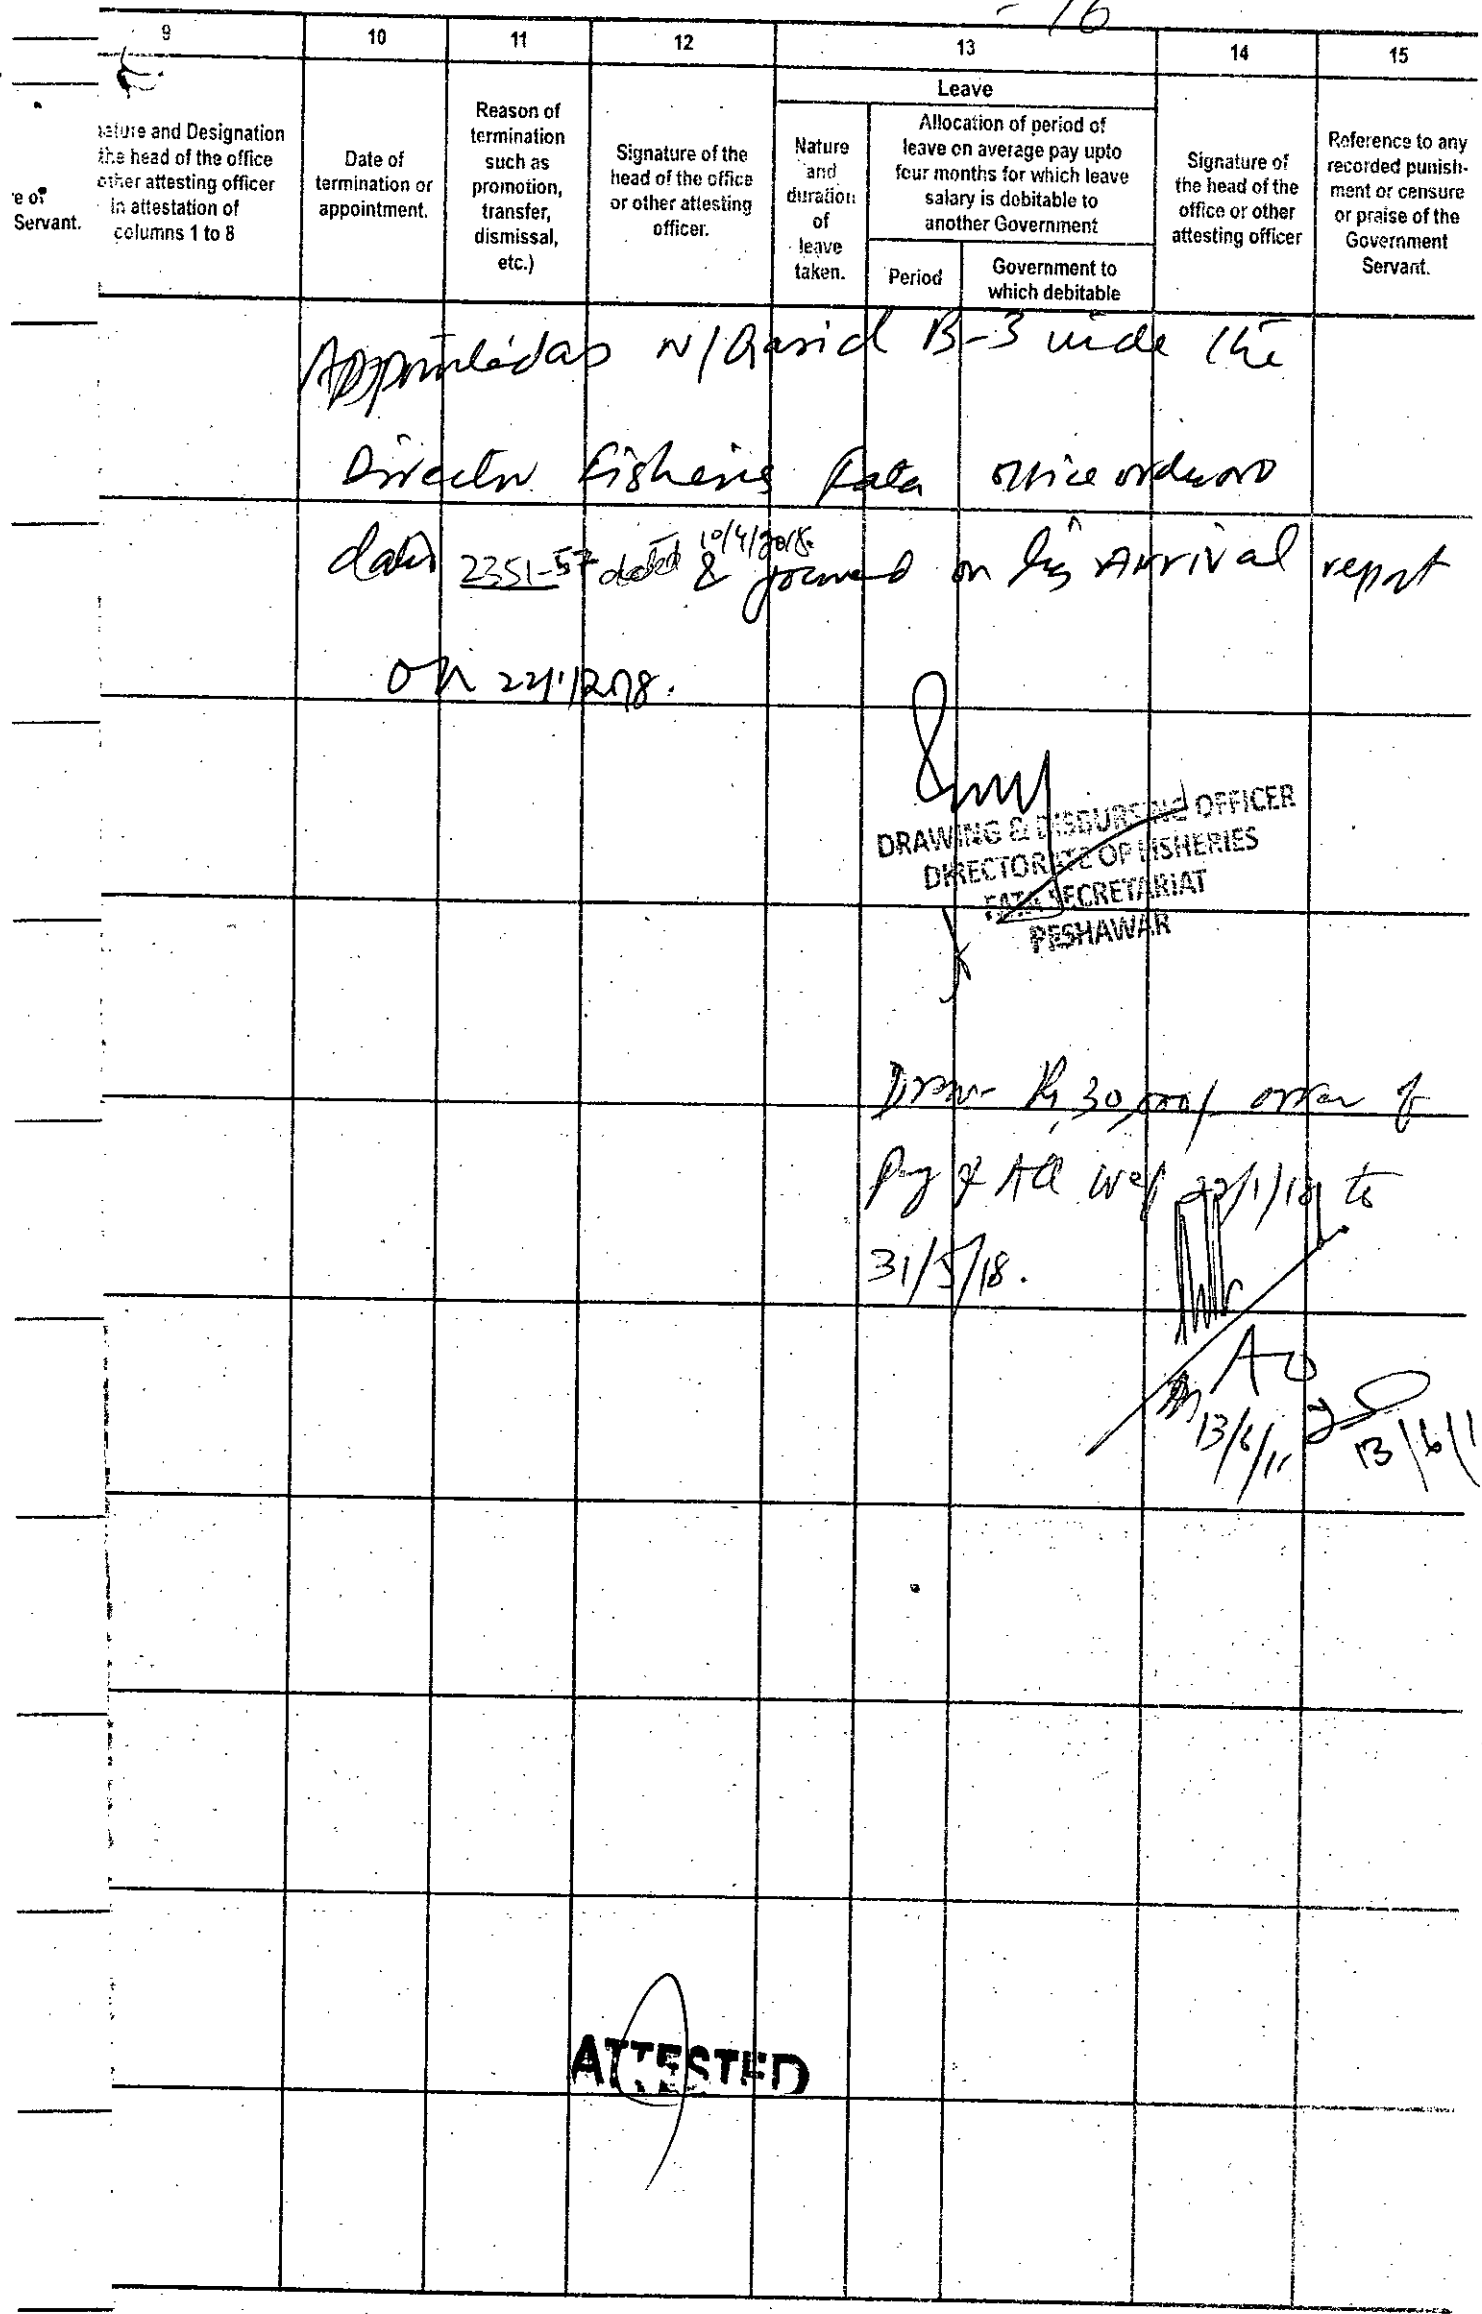 - 16
9 10 11 12 13 14 15
ature and Designation
the head of the office
other attesting officer
in attestation of
columns 1 to 8
e of
Servant.
Date of
termination or
appointment.
Reason of
termination
such as
promotion,
transfer,
dismissal,
etc.)
Signature of the
head of the office
or other attesting
officer.
Leave
Nature
and
duration
of
leave
taken.
Allocation of period of
leave on average pay upto
four months for which leave
salary is debitable to
another Government
Period
Government to
which debitable
Signature of
the head of the
office or other
attesting officer
Reference to any
recorded punish-
ment or censure
or praise of the
Government
Servant.
Appointed as N/Qasid B-3 vide the
Director Fisheries Fata office order no
2351-57 dated 10/4/2018. & on his Arrival report
on 22/1/2018.
DRAWING & DISBURSING OFFICER
DIRECTORATE OF FISHERIES
FATA SECRETARIAT
PESHAWAR
Drawn Rs 30,000/- arrear of
Pay & All wef 22/1/18 to
31/5/18.
AO
13/6/1
ATTESTED